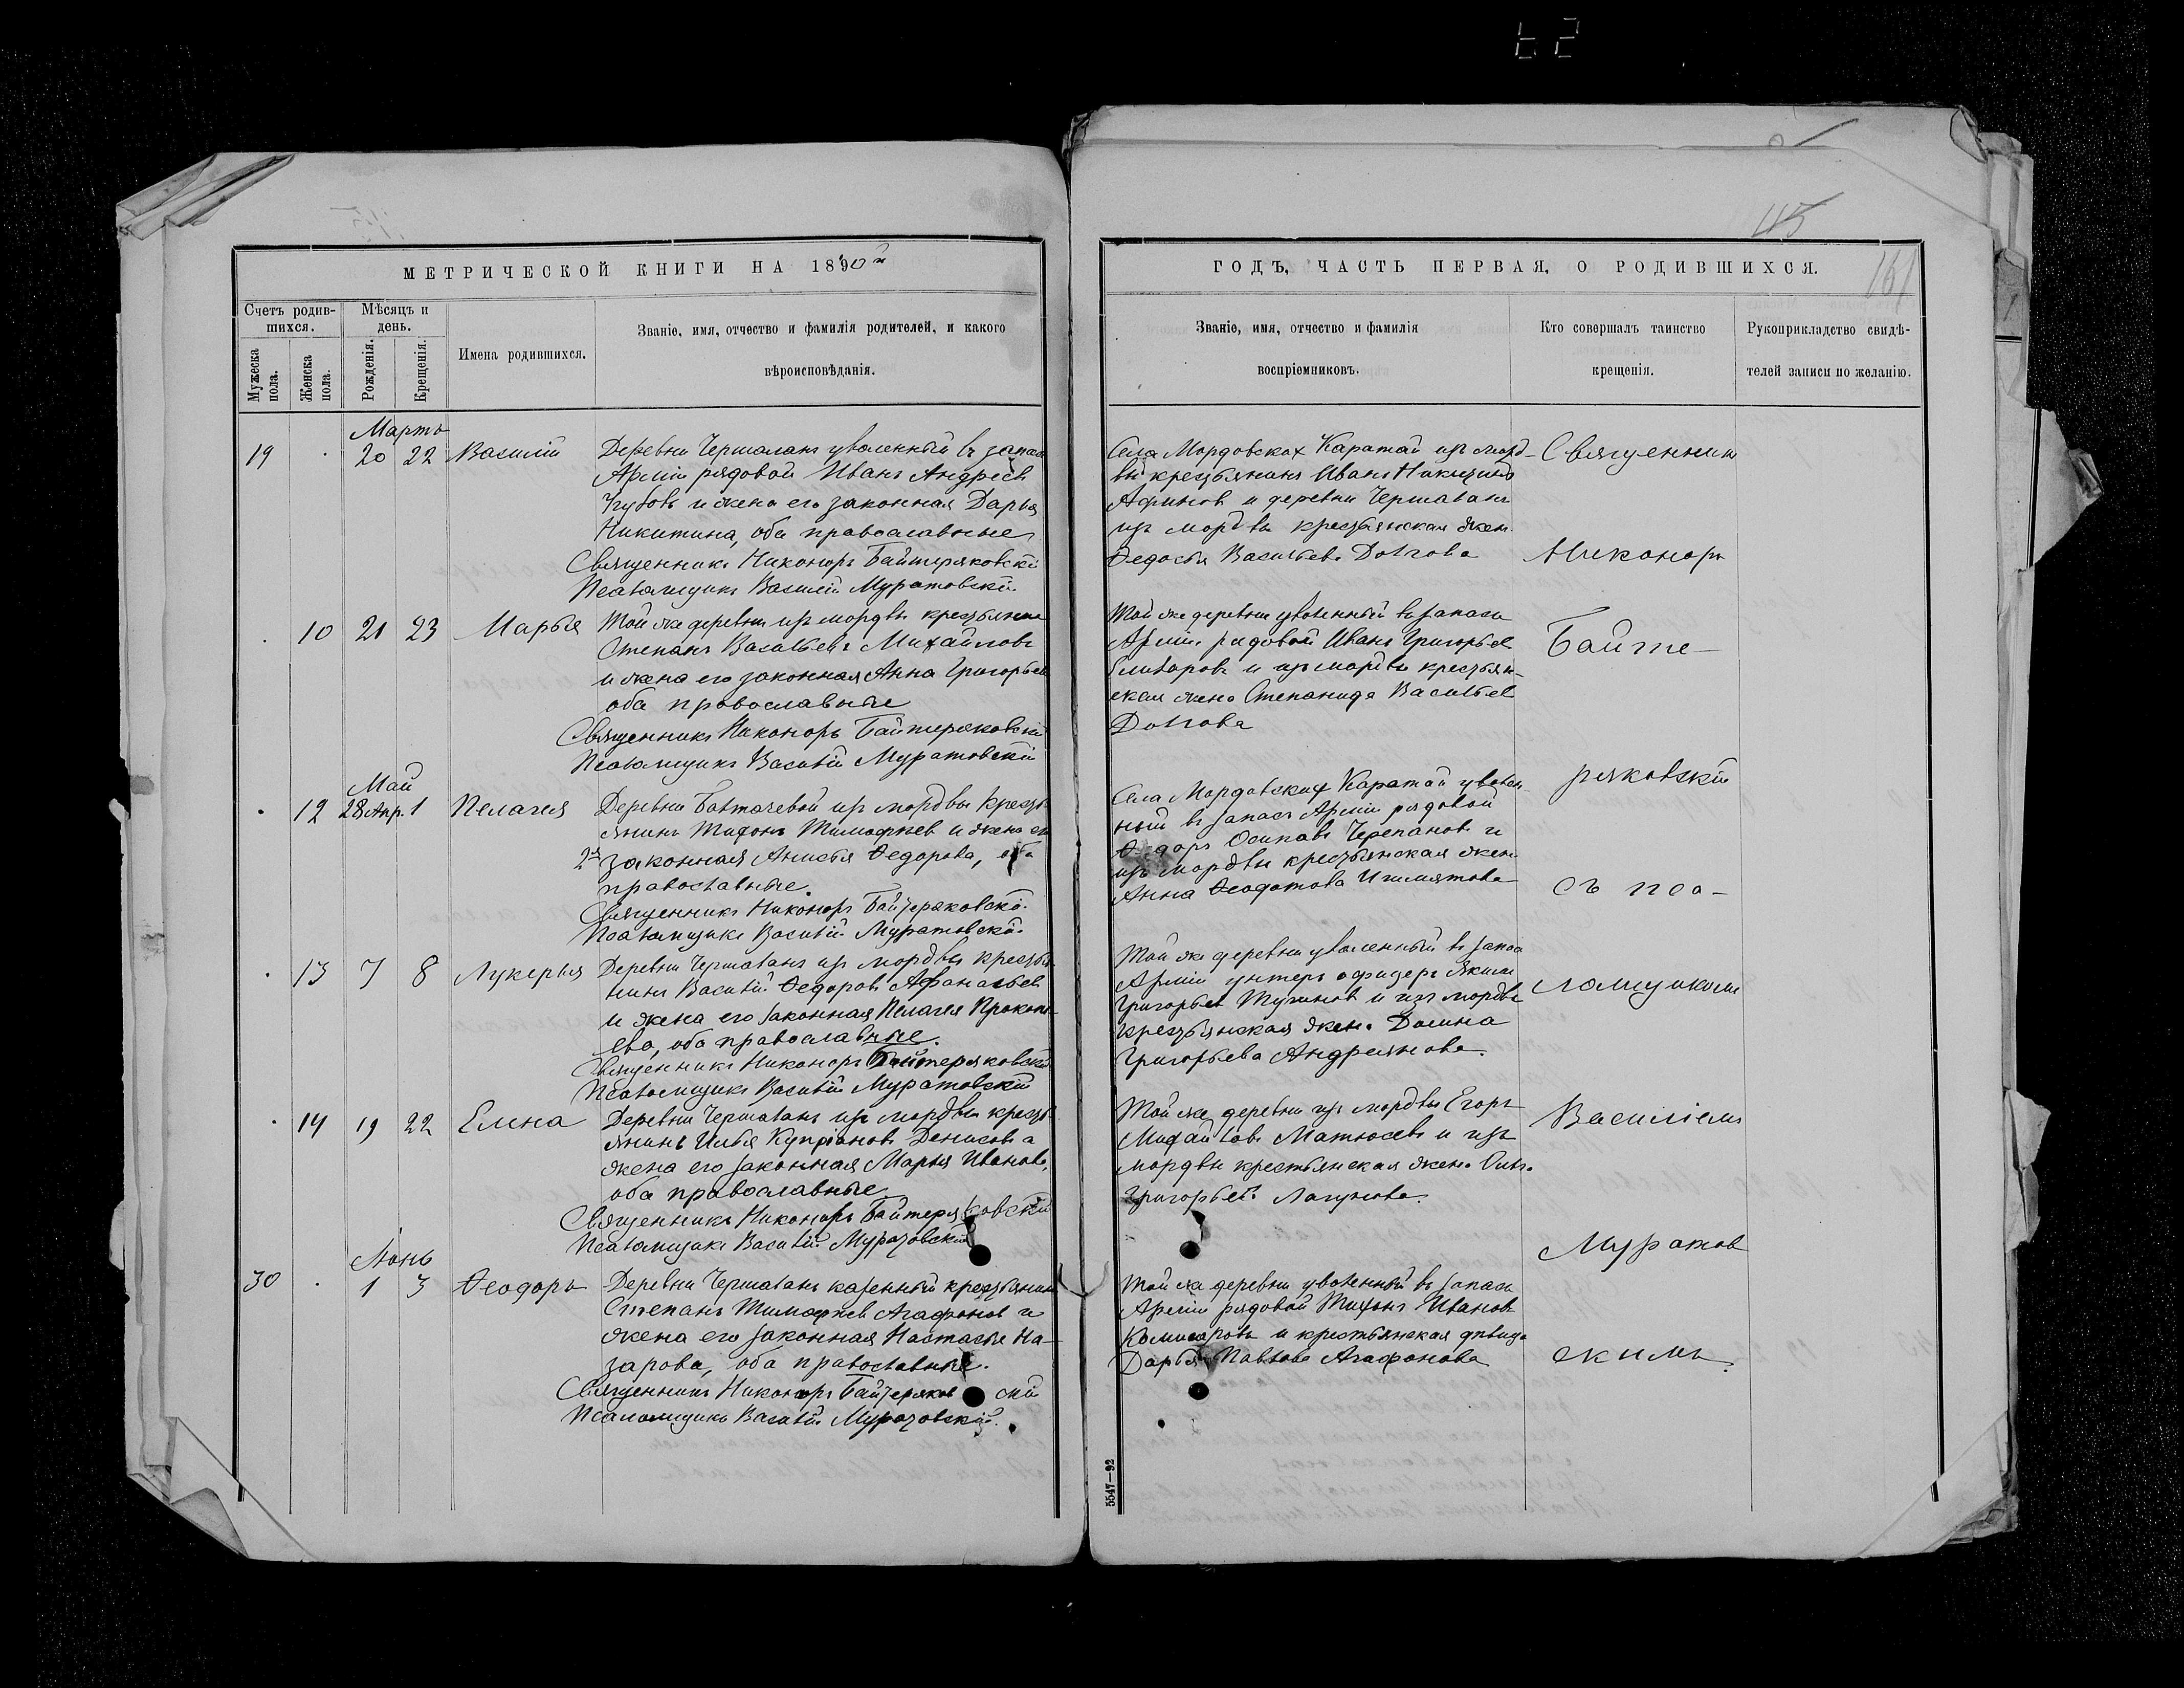 45
161
МЕТРИЧЕСКОЙ КНИГИ НА 1890й
ГОДЪ, ЧАСТЬ ПЕРВАЯ, О РОДИВШИХСЯ.
Счетъ родив-
шихся.
Мужеска
пола.
Женска
пола.
Мѣсяцъ и
день.
Рожденія.
Крещенія.
Имена родившихся.
Званіе, имя, отчество и фамилія родителей, и какого
вѣроисповѣданія.
Званіе, имя, отчество и фамилія
воспріемниковъ.
Кто совершалъ таинство
крещенія.
Рукоприкладство свидѣ-
телей записи по желанію.
Мартъ
19 20 22 Василій
Деревни Чершаланъ уволенный въ запасъ
Арміи рядовой Иванъ Андреевъ
и жена его законная Дарья
Никитина, оба православные
Священникъ Никоноръ Байтеряковскій
Псаломщикъ Василій Муратовскій
Села Мордовских Каратай изъ морд-
вы крестьянинъ Иванъ
и деревни Чершаланъ
изъ мордвы крестьянская жена
Ѳедосья Васильева Долгова
10 21 23 Марья
Той же деревни изъ мордвы крестьянинъ
Степанъ Васильевъ Михайловъ
и жена его законная Анна Григорьева
оба православные
Священникъ Никоноръ Байтеряковскій
Псаломщикъ Василій Муратовскій
Той же деревни уволенный въ запасъ
Арміи рядовой Иванъ Григорьев
и изъ мордвы крестьян-
ская жена Степанида Васильев
Долгова
Май
12 28 Апр. 1 Пелагея
Деревни Балтачевой изъ мордвы крестъ
янинъ Тихонъ Тимофеев и жена его
2я законная Анисья Ѳедорова, оба
православные.
Священникъ Никоноръ Байтеряковскій
Псаломщикъ Василій Муратовскій
Села Мордовских Каратай уволен-
ный въ запасъ Арміи рядовой
Ѳедоръ Осиповъ Черепановъ и
изъ мордвы крестьянская жена
Анна Ѳеодотова
13 7 8 Лукерья
Деревни Чершаланъ изъ мордвы крестья
нинъ Василій Ѳедоровъ Афанасьев
и жена его законная Пелагея Прокопь-
ева, оба православные.
Священникъ Никоноръ Байтеряковскій
Псаломщикъ Василій Муратовскій
Той же деревни уволенный въ запас
Арміи унтеръ офицеръ Яким
Григорьев и изъ мордвы
крестьянская жена Домна
Григорьева Андреянова.
14 19 22 Елена
Деревни Чершаланъ изъ мордвы кресть
янинъ Илья Купріановъ Денисов а
жена его законная Марья Иванова,
оба православные
Священникъ Никоноръ Байтеряковскій
Псаломщикъ Василій Муратовскій
Той же деревни изъ мордвы Егоръ
Михайловъ Матюсевъ и изъ
мордвы крестьянская жена
Григорьева Лагунова.
Іюнь
30 1 3 Ѳеодоръ
Деревни Чершаланъ казенный крестьянинъ
Степанъ Тимофеев Агафонов и
жена его законная Настасья На-
зарова, оба православные.
Священникъ Никоноръ Байтеряковскій
Псаломщикъ Василій Муратовскій.
Той же деревни уволенный въ запасъ
Арміи рядовой Тихонъ Иванов
Комисаровъ и крестьянская дѣвица
Дарья Павлова Агафонова
Священник
Никоноръ
Байте-
ряковскій
съ пса-
ломщиком
Василіемъ
Муратов
скимъ.
5547—92